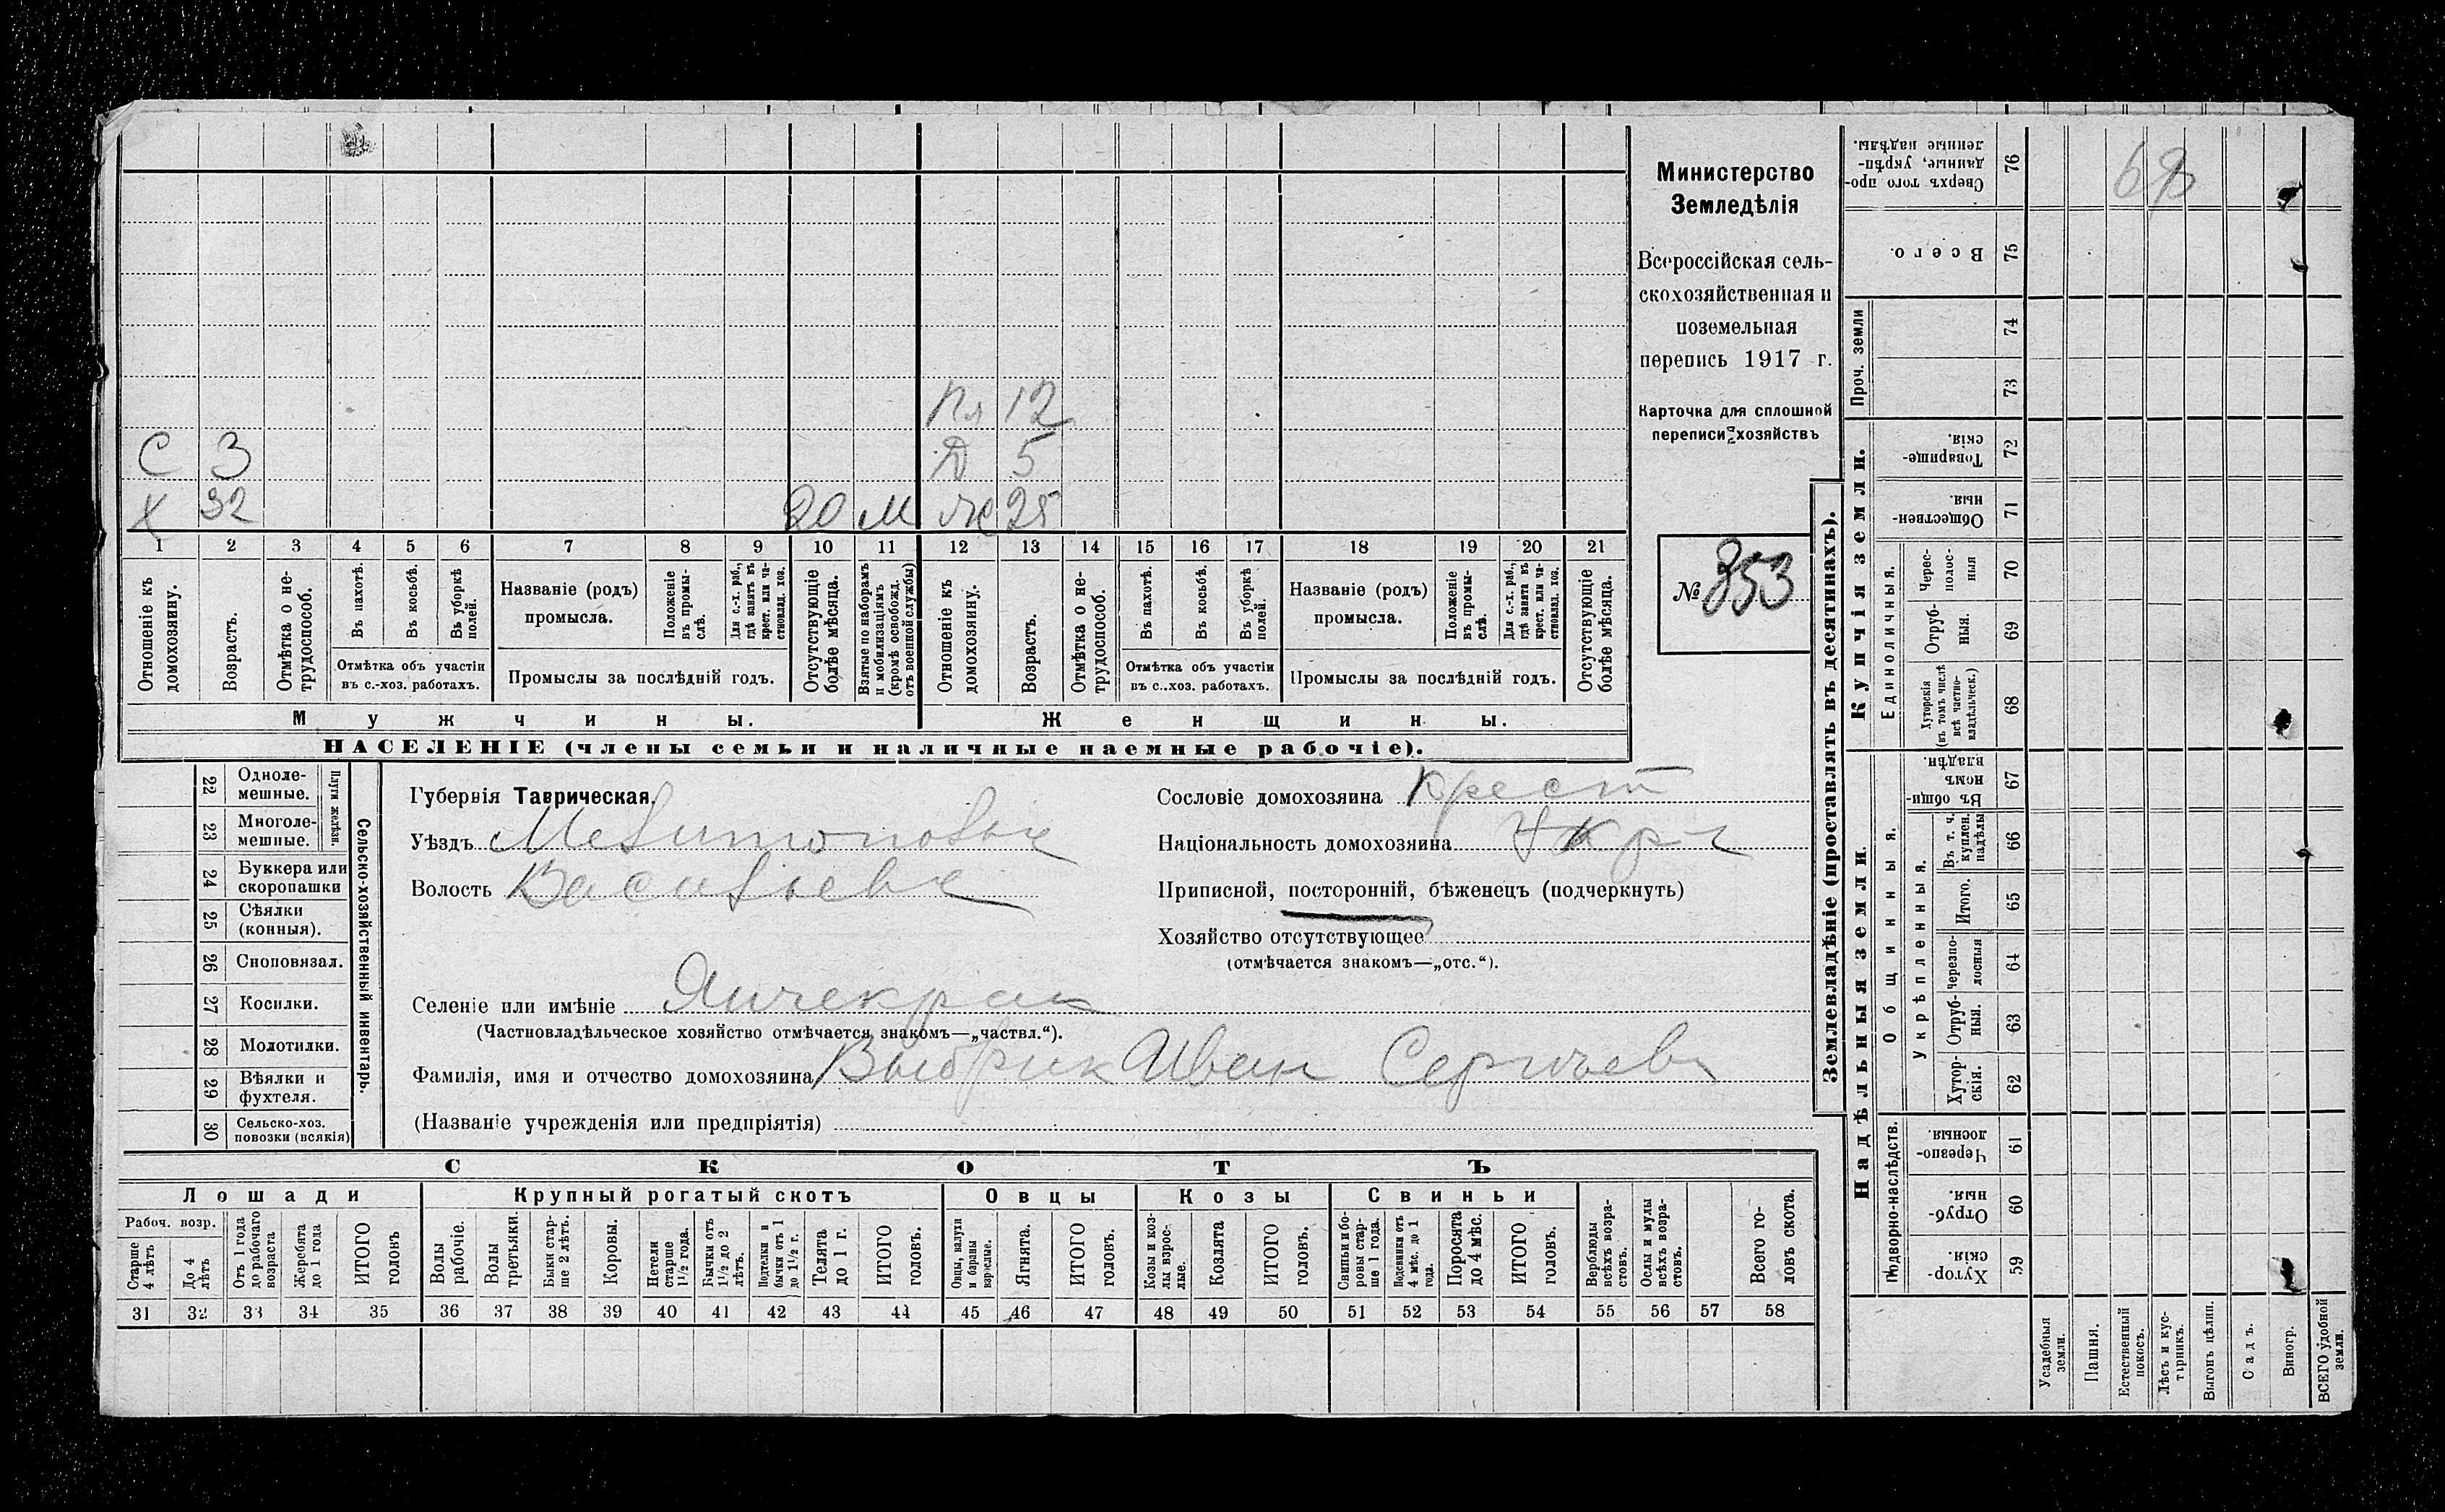 68
Министерство
Земледѣлія
Всероссійская сель-
скохозяйственная и
поземельная
перепись 1917 г.
Карточка для сплошной
переписи хозяйствъ
№ 353
Пл 12
С 3 Д 5
Х 32 20 М Ж 25
1 2 3 4 5 6 7 8 9 10 11 12 13 14 15 16 17 18 19 20 21
Отношеніе къ домохозяину.
Возрастъ.
Отмѣтка о не-трудоспособ.
Въ пахотѣ.
Въ косьбѣ.
Въ уборкѣ полей.
Отмѣтка объ участіи
въ с.-хоз. работахъ.
Названіе (родъ)
промысла.
Положеніе въ промы-слѣ.
Для с.-х. раб., гдѣ занятъ въ крест. или ча-стновлад. хоз.
Промыслы за послѣдній годъ.
Отсутствующіе болѣе мѣсяца.
Взятые по наборамъ и мобилизаціямъ (кромѣ освобожд. отъ военной службы)
Отношеніе къ домохозяину.
Возрастъ.
Отмѣтка о не-трудоспособ.
Въ пахотѣ.
Въ косьбѣ.
Въ уборкѣ полей.
Отмѣтка объ участіи
въ с.-хоз. работахъ.
Названіе (родъ)
промысла.
Положеніе въ промы-слѣ.
Для с.-х. раб., гдѣ занята въ крест. или ча-стновлад. хоз.
Промыслы за послѣдній годъ.
Отсутствующіе болѣе мѣсяца.
Мужчины.
Женщины.
НАСЕЛЕНІЕ (члены семьи и наличные наемные рабочіе).
22 Одноле-мешные.
23 Многоле-мешные.
Плуги желѣзн.
24 Буккера или скоропашки
25 Сѣялки (конныя).
26 Сноповязал.
27 Косилки.
28 Молотилки.
29 Вѣялки и фухтеля.
30 Сельско-хоз. повозки (всякія)
Сельско-хозяйственный инвентарь.
Губернія Таврическая.
Уѣздъ Мелитопольск
Волость Васильевск
Сословіе домохозяина Крест
Національность домохозяина Укр
Приписной, посторонній, бѣженецъ (подчеркнуть)
Хозяйство отсутствующее
(отмѣчается знакомъ—„отс.“).
Селеніе или имѣніе Янчекрак
(Частновладѣльческое хозяйство отмѣчается знакомъ—„частвл.“).
Фамилія, имя и отчество домохозяина Выбрик Иван Сергѣев
(Названіе учрежденія или предпріятія)
СКОТЪ
Лошади
Крупный рогатый скотъ
Овцы
Козы
Свиньи
Рабоч. возр.
Старше 4 лѣтъ
До 4 лѣтъ
Отъ 1 года до рабочаго возраста
Жеребята до 1 года
ИТОГО головъ
Волы рабочіе.
Волы третьяки.
Быки стар-ше 2 лѣтъ.
Коровы.
Нетели старше 1½ года.
Бычки отъ 1½ до 2 лѣтъ.
Подтелки и бычки отъ 1 до 1½ г.
Телята до 1 г.
ИТОГО головъ.
Овцы, валухи и бараны взрослые.
Ягнята.
ИТОГО головъ.
Козы и коз-лы взрос-лые.
Козлята
ИТОГО головъ.
Свиньи и бо-ровы стар-ше 1 года.
Подсвинки отъ 4 мѣс. до 1 года.
Поросята до 4 мѣс.
ИТОГО головъ.
Верблюды всѣхъ возра-стовъ.
Ослы и мулы всѣхъ возра-стовъ.
Всего го-ловъ скота.
31 32 33 34 35 36 37 38 39 40 41 42 43 44 45 46 47 48 49 50 51 52 53 54 55 56 57 58
Землевладѣніе (проставлять въ десятинахъ).
Сверхъ того про-данные, укрѣп-ленные надѣлы. 76
Всего. 75
Проч. земли
74
73
Купчія земли.
Товарище-скія. 72
Обществен-ныя. 71
Единоличныя.
Черес-полос-ныя 70
Отруб-ныя. 69
Хуторскія (въ томъ числѣ всѣ частно-владѣльческ.) 68
Надѣльныя земли.
Общинныя.
Въ общин-номъ владѣн. 67
Укрѣпленныя.
Въ т. ч. куплен. надѣлы 66
Итого. 65
Черезпо-лосныя 64
Отруб-ныя. 63
Хутор-скія. 62
Подворно-наслѣдств.
Черезпо-лосныя. 61
Отруб-ныя. 60
Хутор-скія. 59
Усадебныя земли.
Пашня.
Естественный покосъ.
Лѣсъ и кус-тарникъ.
Выгонъ цѣлин.
Садъ.
Виногр.
ВСЕГО удобной земли.